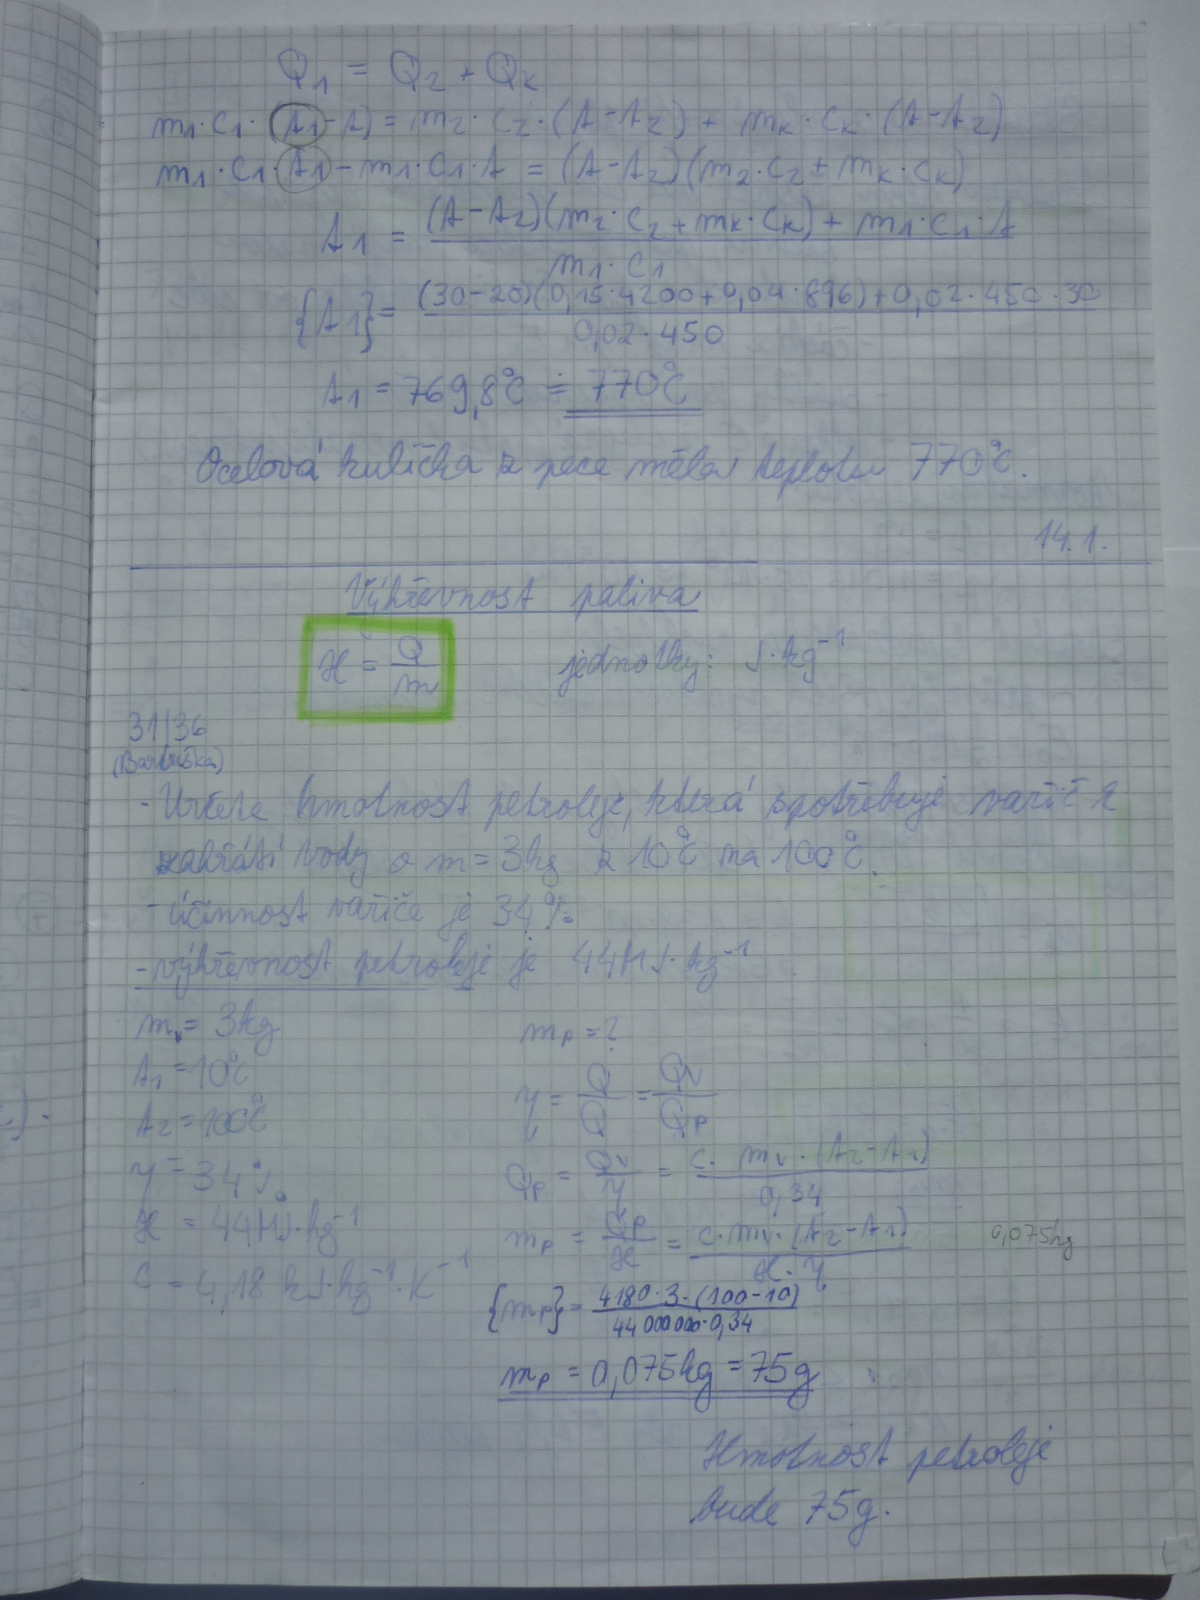 Q1 = Q2 + Qk
m1·c1·(t1-t) = m2·c2·(t-t2) + mk·ck·(t-t2)
m1·c1·t1 - m1·c1·t = (t-t2)(m2·c2 + mk·ck)
t1 = (t-t2)(m2·c2 + mk·ck) + m1·c1·t / m1·c1
{t1} = (30-20)(0,15·4200+0,04·896)+0,02·450·30 / 0,02·450
t1 = 769,8°C ≐ 770°C
Ocelová kulička z pece měla teplotu 770°C.
14.1.
Výhřevnost paliva
H = Q/m jednotky: J·kg⁻¹
31/36
(Bartuška)
- Určete hmotnost petroleje, která spotřebuje vařič k
zahřátí vody o m = 3kg z 10°C na 100°C.
- účinnost vařiče je 34%
- výhřevnost petroleje je 44MJ·kg⁻¹
mv = 3kg mp = ?
t1 = 10°C
η = Q/Q = Qv/Qp
t2 = 100°C
η = 34% Qp = Qv/η = c·mv·(t2-t1) / 0,34
H = 44MJ·kg⁻¹ mp = Qp/H = c·mv·(t2-t1) / H·η 0,075kg
c = 4,18 kJ·kg⁻¹·K⁻¹
{mp} = 4180·3·(100-10) / 44 000 000·0,34
mp = 0,075kg = 75g
Hmotnost petroleje
bude 75g.